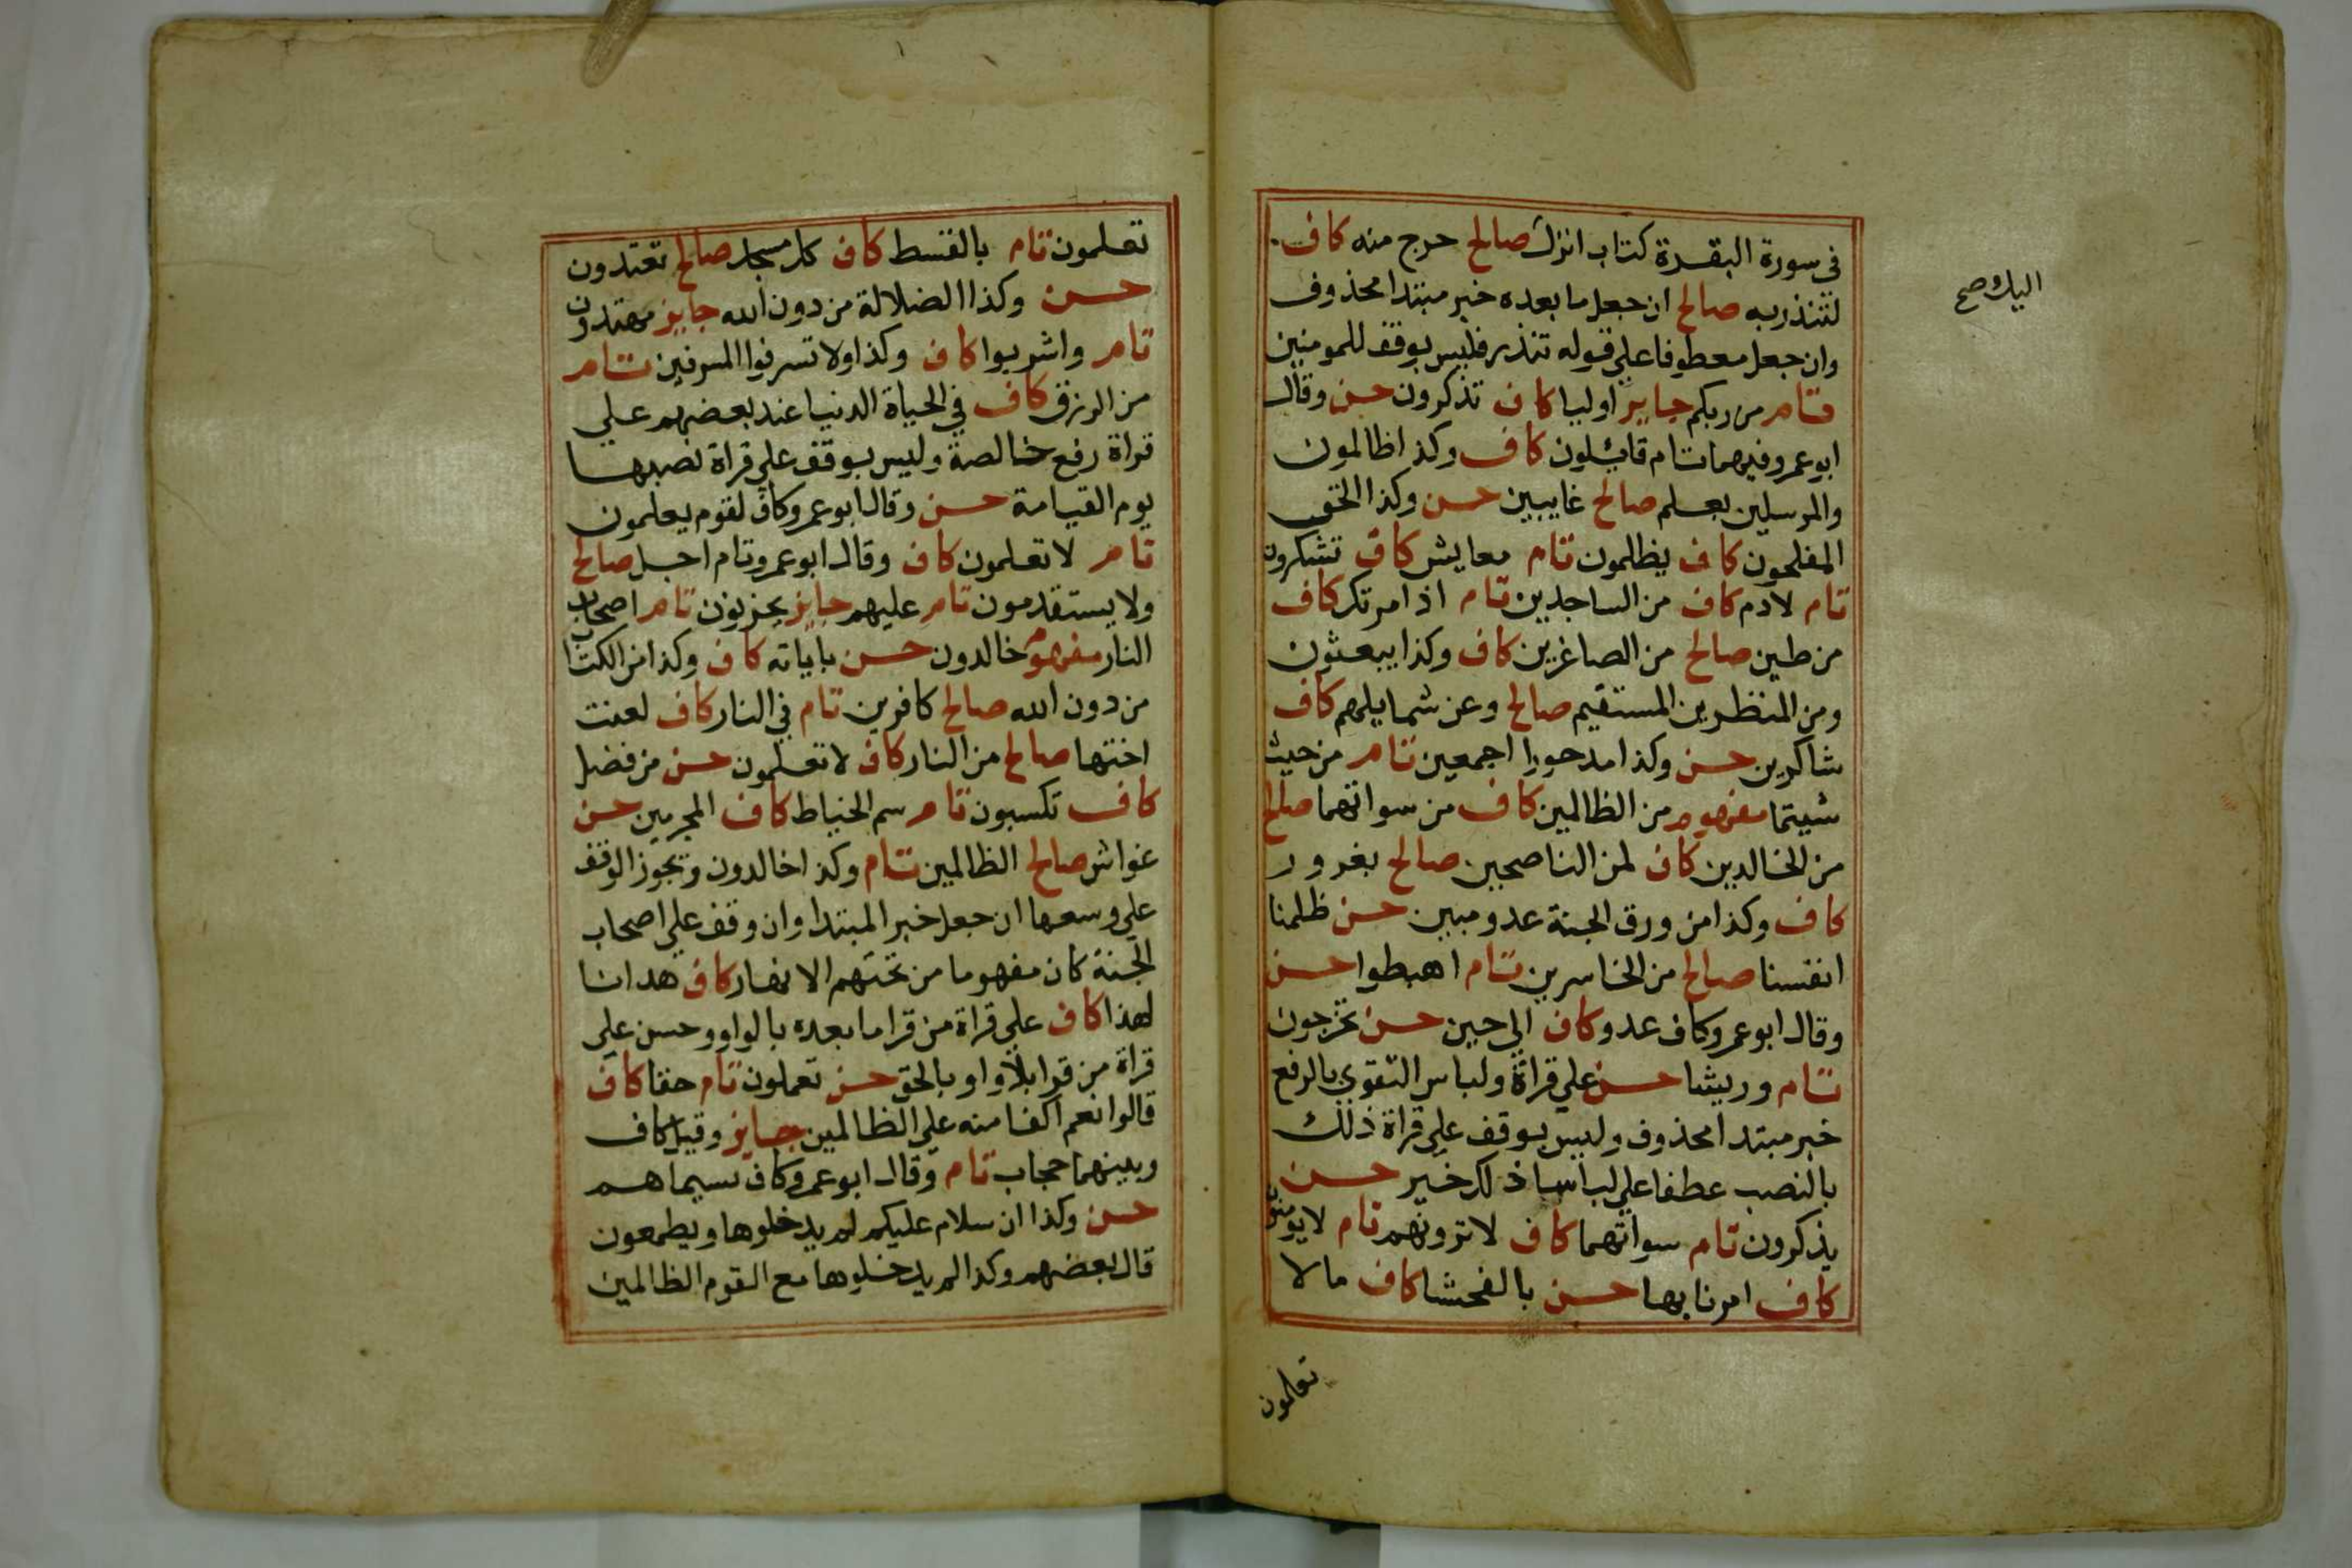 في سورة البقرة كتاب انزل صالح حرج منه كاف
اليك صح
لتنذر به صالح ان جعل ما بعده خبر مبتدا محذوف
وان جعل معطوفا على قوله تنذر فليس بوقف للمومنين
تام من ربكم جايز اوليا كاف تذكرون حسن وقال
ابو عمرو فيهما تام قائلون كاف وكذا ظالمون
والمرسلين بعلم صالح غايبين حسن وكذا الحق
المفلحون كاف يظلمون تام معايش كاف تشكرون
تام لادم كاف من الساجدين تام اذ امرتك كاف
من طين صالح من الصاغرين كاف وكذا يبعثون
ومن المنظرين المستقيم صالح وعن شمايلهم كاف
شاكرين حسن وكذا مدحورا اجمعين تام من حيث
شيتما مفهوم من الظالمين كاف من سواتهما صالح
من الخالدين كاف لمن الناصحين صالح بغرور
كاف وكذا من ورق الجنة عدو مبين حسن ظلمنا
انفسنا صالح من الخاسرين تام اهبطوا حسن
وقال ابو عمرو كاف عدو كاف الي حين حسن تخرجون
تام وريشا حسن علي قراة ولباس التقوي بالرفع
خبر مبتدا محذوف وليس بوقف علي قراة ذلك
بالنصب عطفا علي لباسا ذلك خير حسن
يذكرون تام سواتهما كاف لا ترونهم تام لا يومنون
كاف امرنا بها حسن بالفحشا كاف ما لا
تعلمون
تعلمون تام بالقسط كاف كل مسجد صالح تعتدون
حسن وكذا الضلالة من دون الله جايز مهتدون
تام واشربوا كاف وكذا ولا تسرفوا المسرفين تام
من الرزق كاف في الحياة الدنيا عند بعضهم علي
قراة رفع خالصة وليس بوقف علي قراة نصبها
يوم القيامة حسن وقال ابو عمرو كاف لقوم يعلمون
تام لا تعلمون كاف وقال ابو عمرو تام اجل صالح
ولا يستقدمون تام عليهم جايز يحزنون تام اصحاب
النار مفهوم خالدون حسن باياته كاف وكذا من الكتاب
من دون الله صالح كافرين تام في النار كاف لعنت
اختها صالح من النار كاف لا تعلمون حسن من فضل
كاف تكسبون تام سم الخياط كاف المجرمين حسن
غواش صالح الظالمين تام وكذا خالدون ويجوز الوقف
علي وسعها ان جعل خبر المبتدا وان وقف علي اصحاب
الجنة كان مفهوما من تحتهم الانهار كاف هدانا
لهذا كاف علي قراة من قرا ما بعده بالواو وحسن علي
قراة من قرا بلا واو بالحق حسن تعملون تام حقا كاف
قالوا نعم اكفا منه علي الظالمين جايز وقيل كاف
وبينهما حجاب تام وقال ابو عمرو كاف بسيماهم
حسن وكذا ان سلام عليكم لم يدخلوها ويطمعون
قال بعضهم وكذا لم يدخلوها مع القوم الظالمين